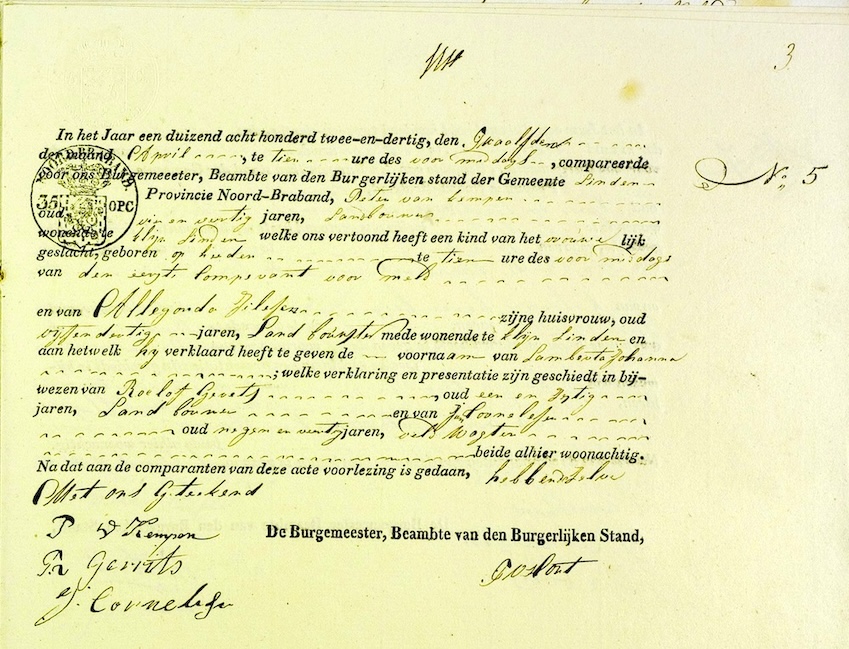 3
In het Jaar een duizend acht honderd twee-en-dertig, den Twaalfden
der maand April, te tien ure des voor middags, compareerde
voor ons Burgemeeeter, Beambte van den Burgerlijken stand der Gemeente Linden
No 5
Provincie Noord-Braband, Peter van Kempen
35 OPC
oud vier en veertig jaren, Landbouwer
wonende te klijn Linden welke ons vertoond heeft een kind van het vrouwe lijk
geslacht, geboren op heeden te tien ure des voor middags
van den eerste Comparant voor meld
en van Allegonda zijne huisvrouw, oud
vijfendertig jaren, Land bouwster mede wonende te klijn Linden en
aan hetwelk hy verklaard heeft te geven de voornaam van Lamberta Johanna
; welke verklaring en presentatie zijn geschiedt in bij-
wezen van Roelof Gerets, oud een en
jaren, Land bouwer en van
oud negen en jaren, veld Wagter
beide alhier woonachtig.
Na dat aan de comparanten van deze acte voorlezing is gedaan, hebben
Met ons Geteekend
P V Kempen
De Burgemeester, Beambte van den Burgerlijken Stand,
Gerrits
J. Cornelisse